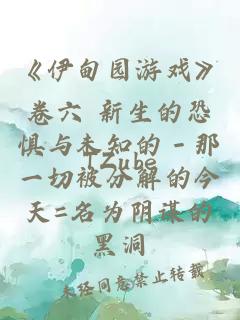 《伊甸园游戏》
卷六 新生的恐
惧与未知的-那
Zube
一切被分解的今
天=名为阴谋的
黑洞
未经同意禁止转载